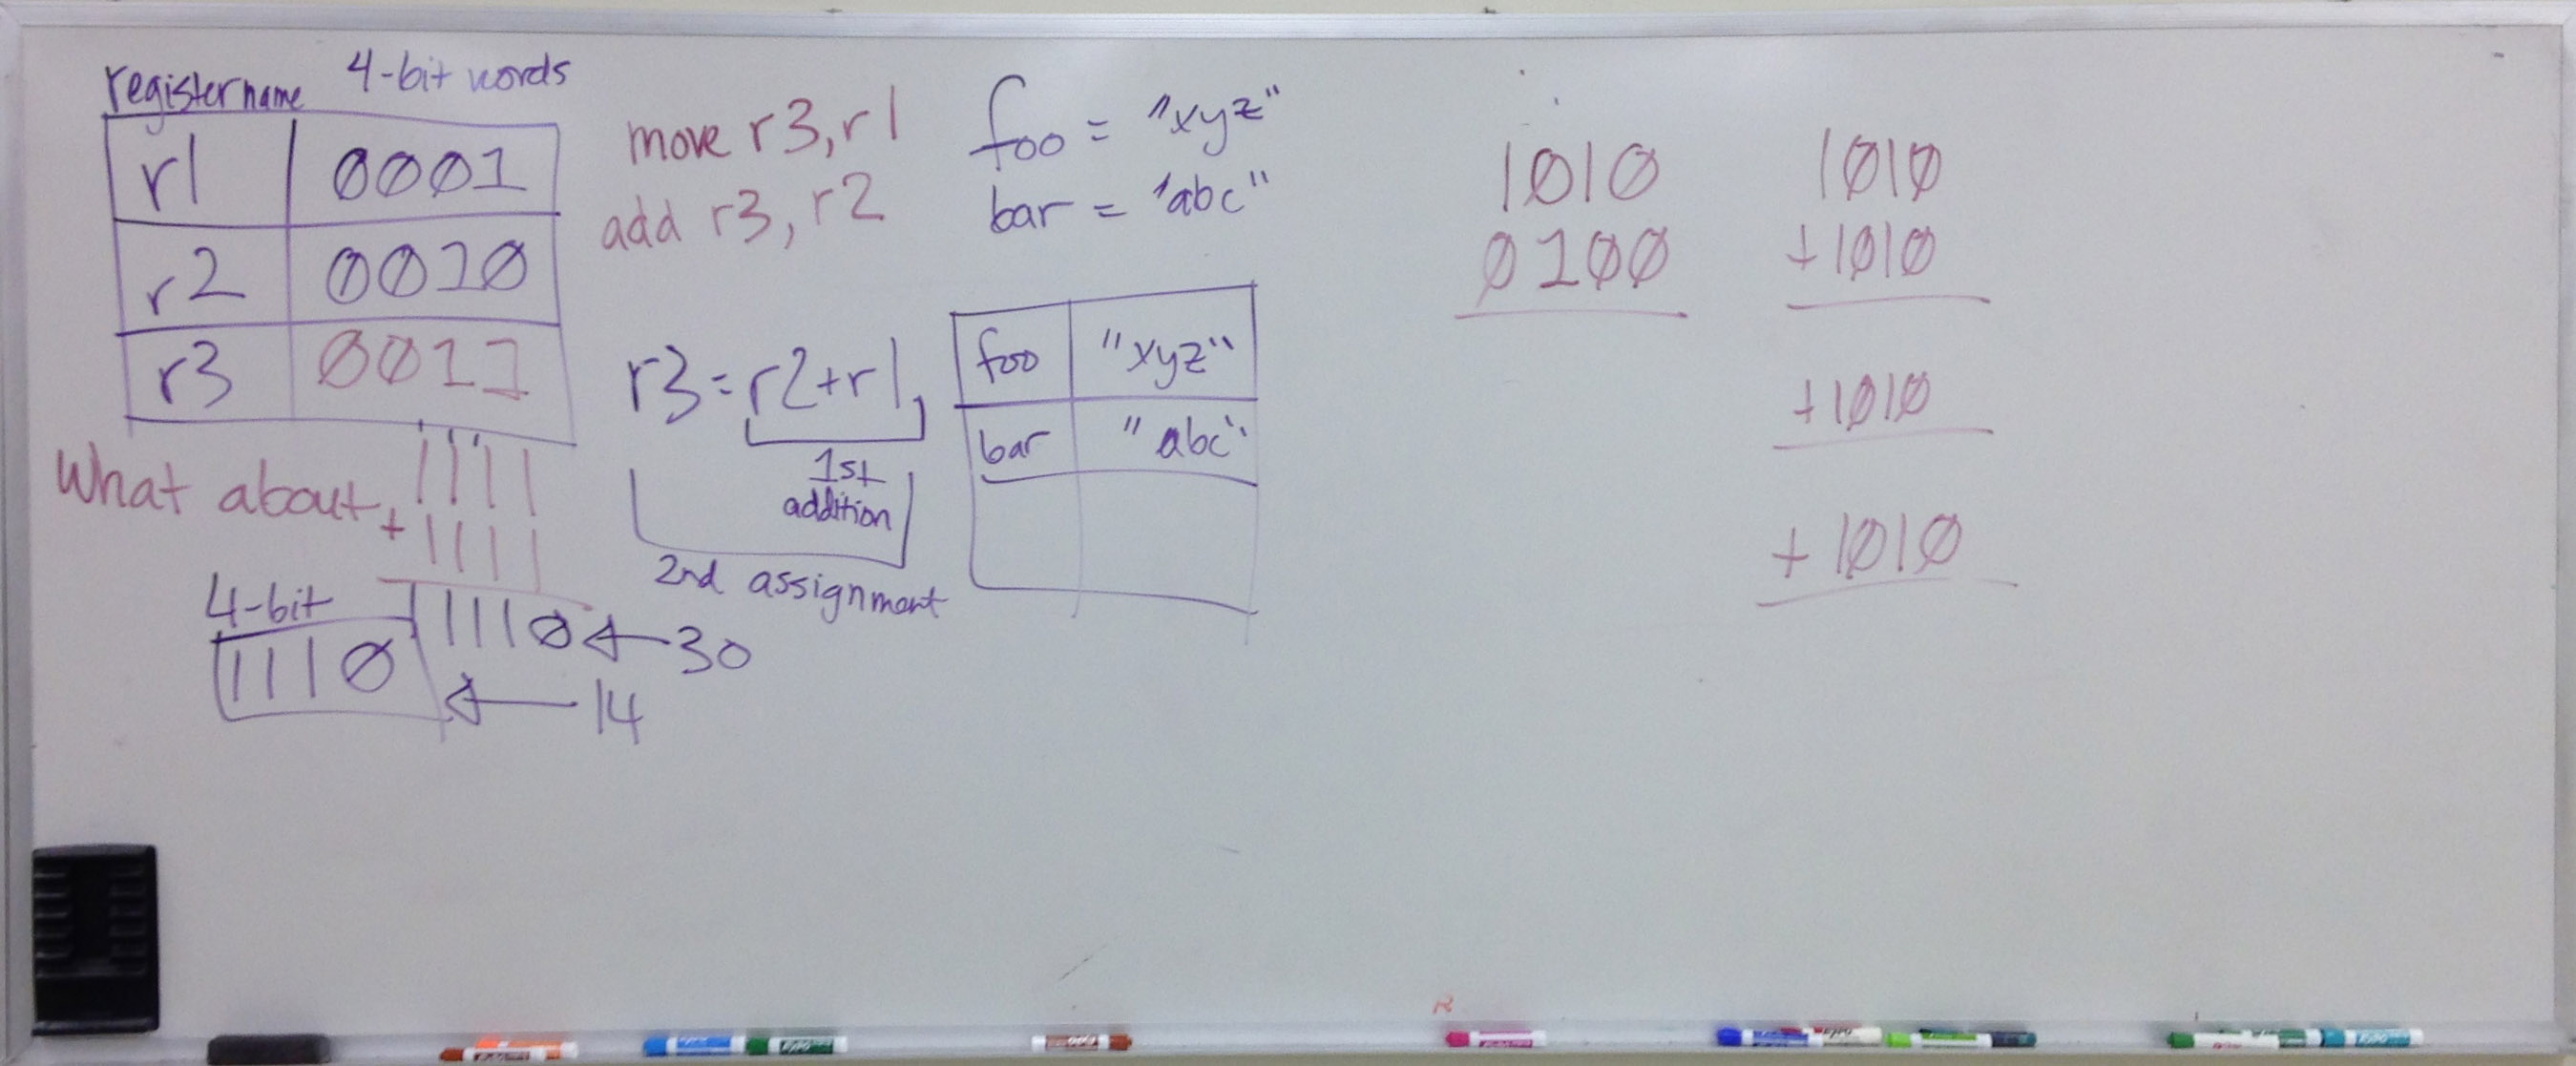 register name 4-bit words
r1 0001
r2 0010
r3 0011
What about 1111
+ 1111
11110 ← 30
4-bit
1110 ← 14
move r3, r1
add r3, r2
r3 = r2+r1
1st
addition
2nd assignment
foo = "xyz"
bar = "abc"
foo "xyz"
bar "abc"
1010
0100
1010
+1010
+1010
+1010